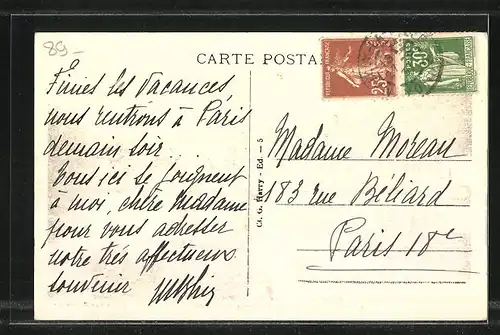 89-
CARTE POSTALE
Finies les vacances,
nous rentrons à Paris
demain soir.
Tous ici se joignent
à moi, chère Madame
pour vous adresser
notre très affectueux
souvenir
Cl. G. Harry - Ed. - 5
25c
30c
Madame Moreau
183 rue Béliard
Paris 18e